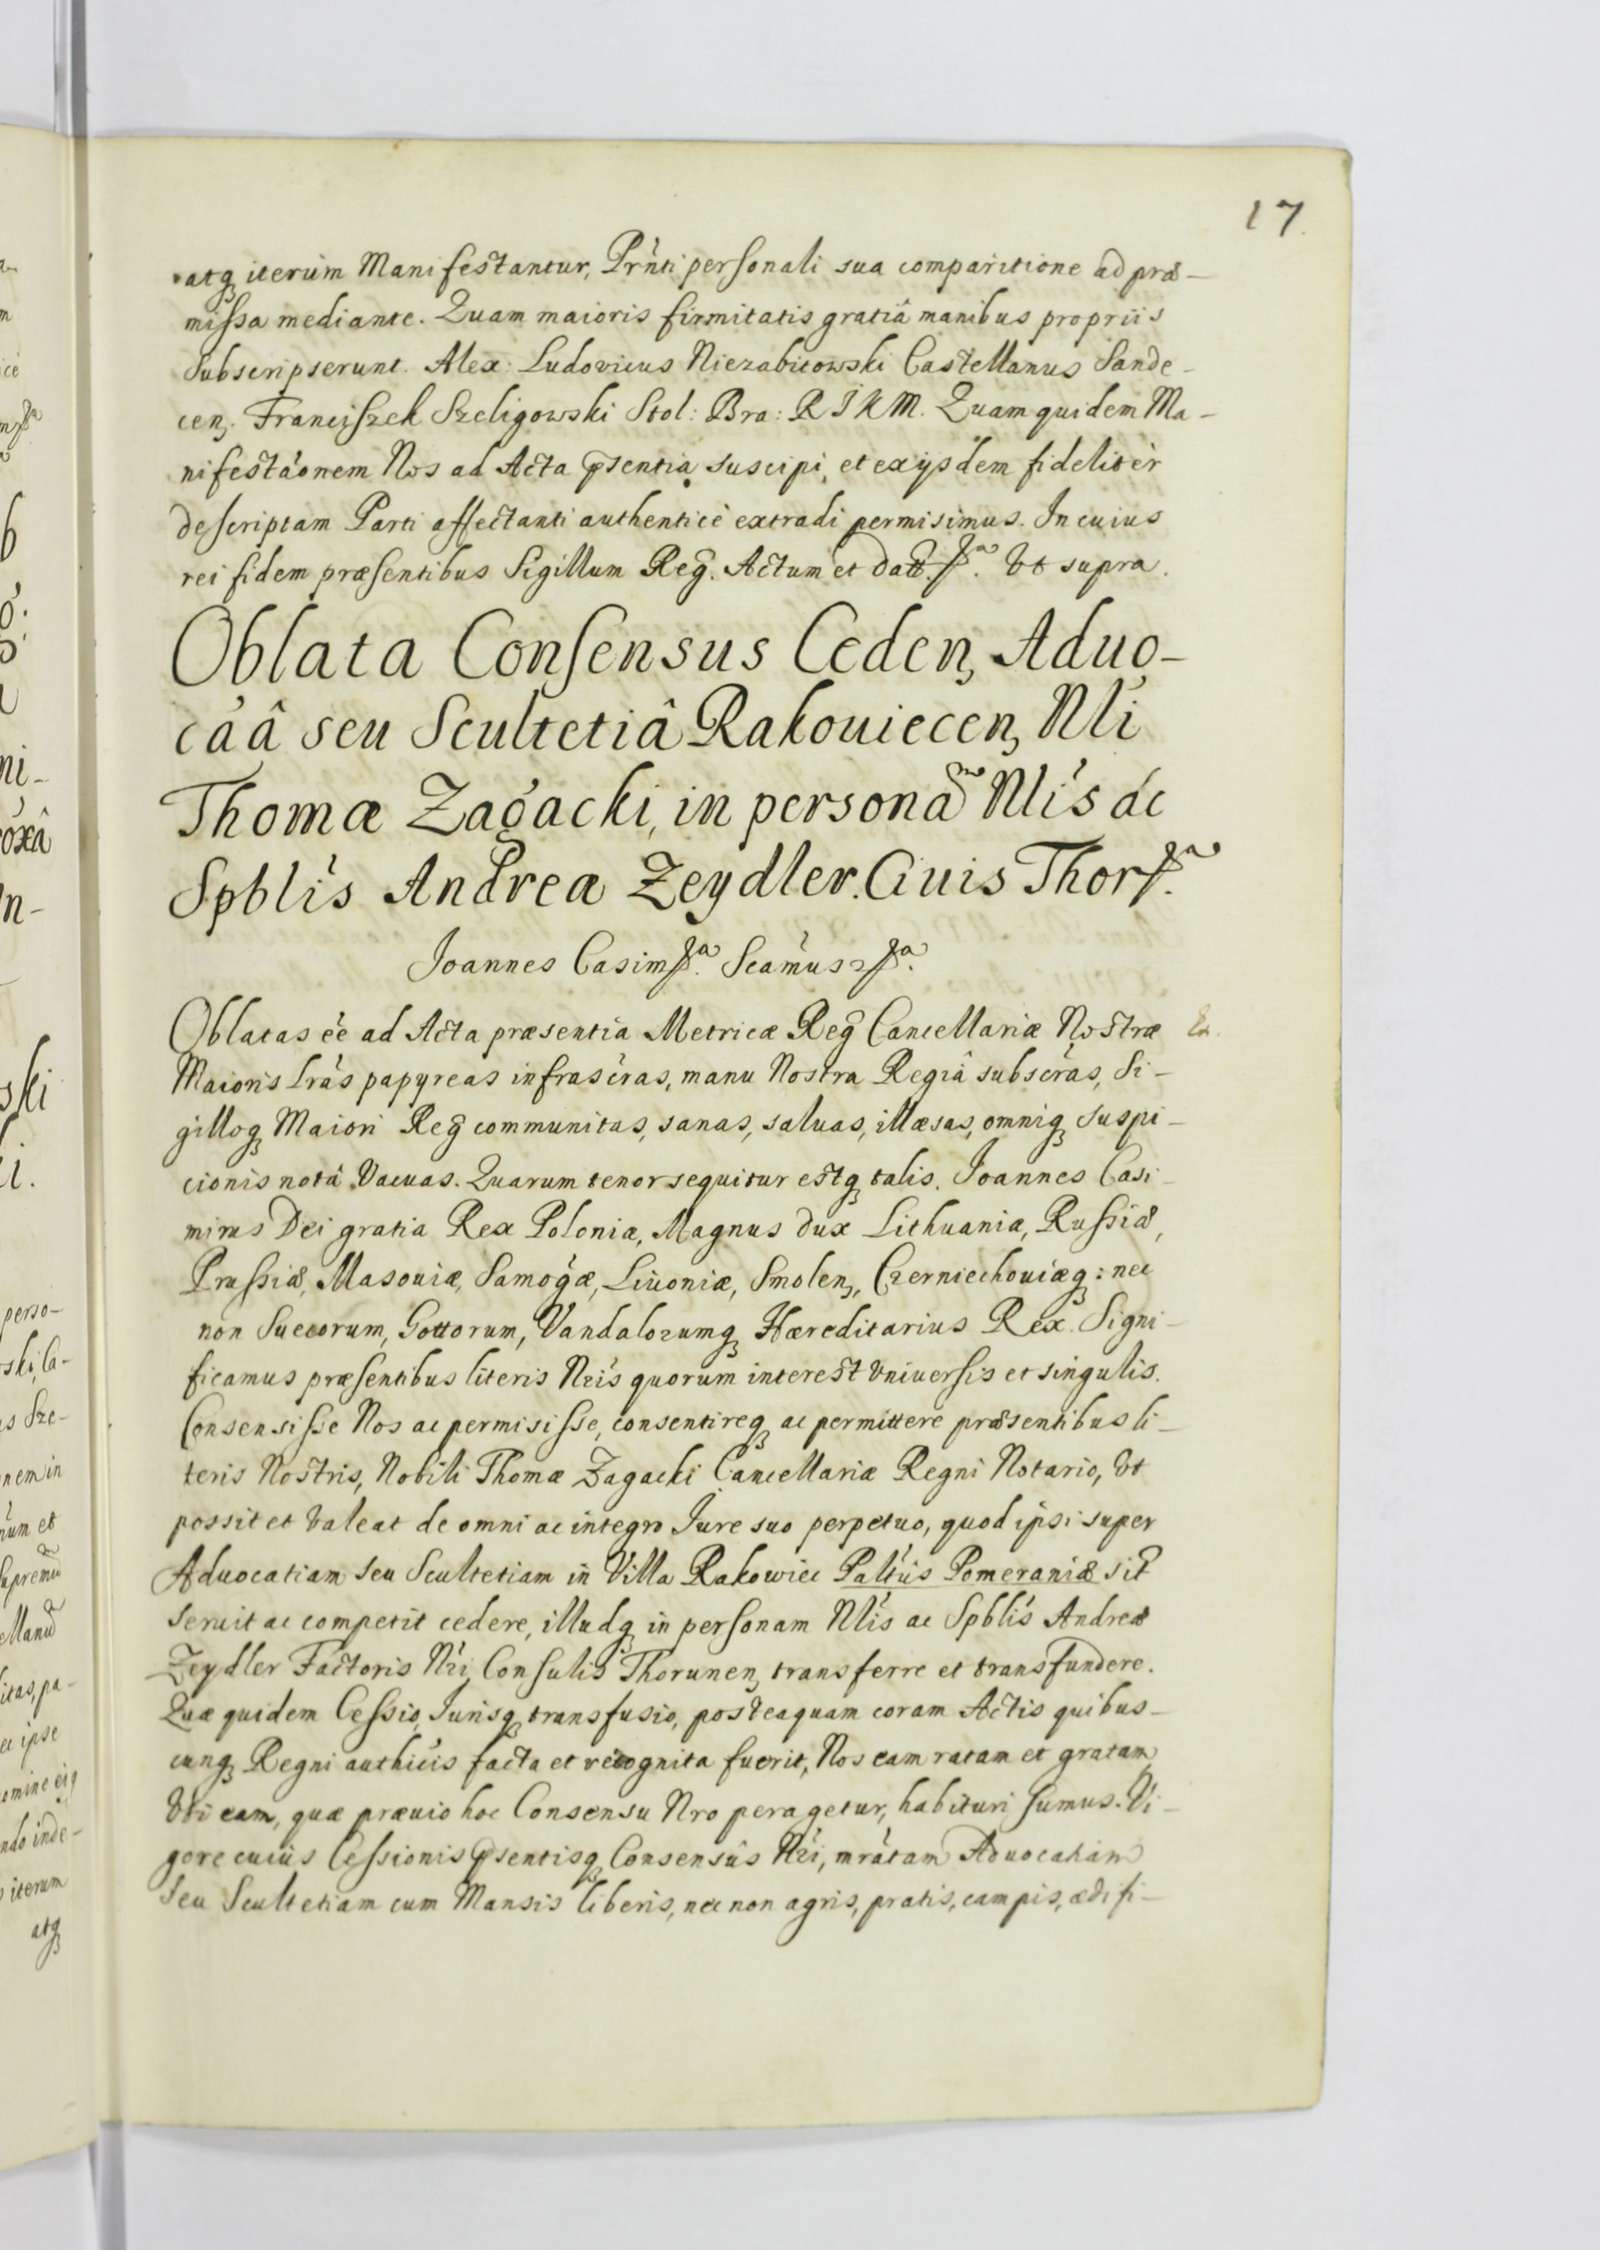 17.
atq iterum Manifestantur, Prnti personali sua comparitione ad præ-
missa mediante. Quam maioris firmitatis gratiâ manibus propriis
Subscripserunt. Alex: Ludovicus Niezabitowski Castellanus Sande-
cen. Franciszek Szeligowski Stol: Bra: R I K M. Quam quidem Ma-
nifestáonem Nos ad Acta psentia suscipi, et ex ijsdem fideliter
descriptam Parti affectanti authenticè extradi permisimus. In cuius
rei fidem præsentibus Sigillum Reg. Actum et Datt. Vt supra.
Oblata Consensus Ceden, Aduo-
cáâ seu Scultetiâ Rakouiecen, Nli
Thomæ Zagacki, in personam Nlis ac
Spblis Andreæ Zeydler. Ciuis Thor
Joannes Casim Scámus
Oblatas éé ad Acta præsentia Metricæ Reg Cancellariæ Nostræ
Maioris Lrás papyreas infrascras, manu Nostra Regiâ subscras, Si-
gilloq Maiori Reg communitas, sanas, saluas, illæsas, omniq suspi-
cionis notâ Vacuas. Quarum tenor sequitur estq talis. Joannes Casi-
mirus Dei gratia Rex Poloniæ, Magnus dux Lithuaniæ, Russiæ,
Prussiæ, Masouiæ, Samogæ, Liuoniæ, Smolen, Czerniechouiæq: nec
non Suecorum, Gottorum, Vandalorumq Hæreditarius Rex. Signi-
ficamus præsentibus literis Nris quorum interest Vniuersis et singulis.
Consensisse Nos ac permisisse, consentireq ac permittere præsentibus li-
teris Nostris, Nobili Thomæ Zagacki Cancellariæ Regni Notario, Vt
possit et Valeat de omni ac integro Jure suo perpetuo, quod ipsi super
Aduocatiam seu Scultetiam in Villa Rakowiec Paltûis Pomeraniæ sit
seruit ac competit cedere, illudq in personam Nlis ac Spblis Andreæ
Zeydler Factoris Nri, Consulis Thorunen, transferre et transfundere.
Quæ quidem Cessio, Jurisq transfusio, posteaquam coram Actis quibus-
cunq Regni authicis facta et recognita fuerit, Nos eam ratam et gratam
Vti eam, quæ præuio hoc Consensu Nro peragetur, habituri sumus. Vi-
gore cuius Cessionis psentisq Consensûs Nri, mrátam Aduocatiam
seu Scultetiam cum Mansis liberis, nec non agris, pratis, campis, ædifi-